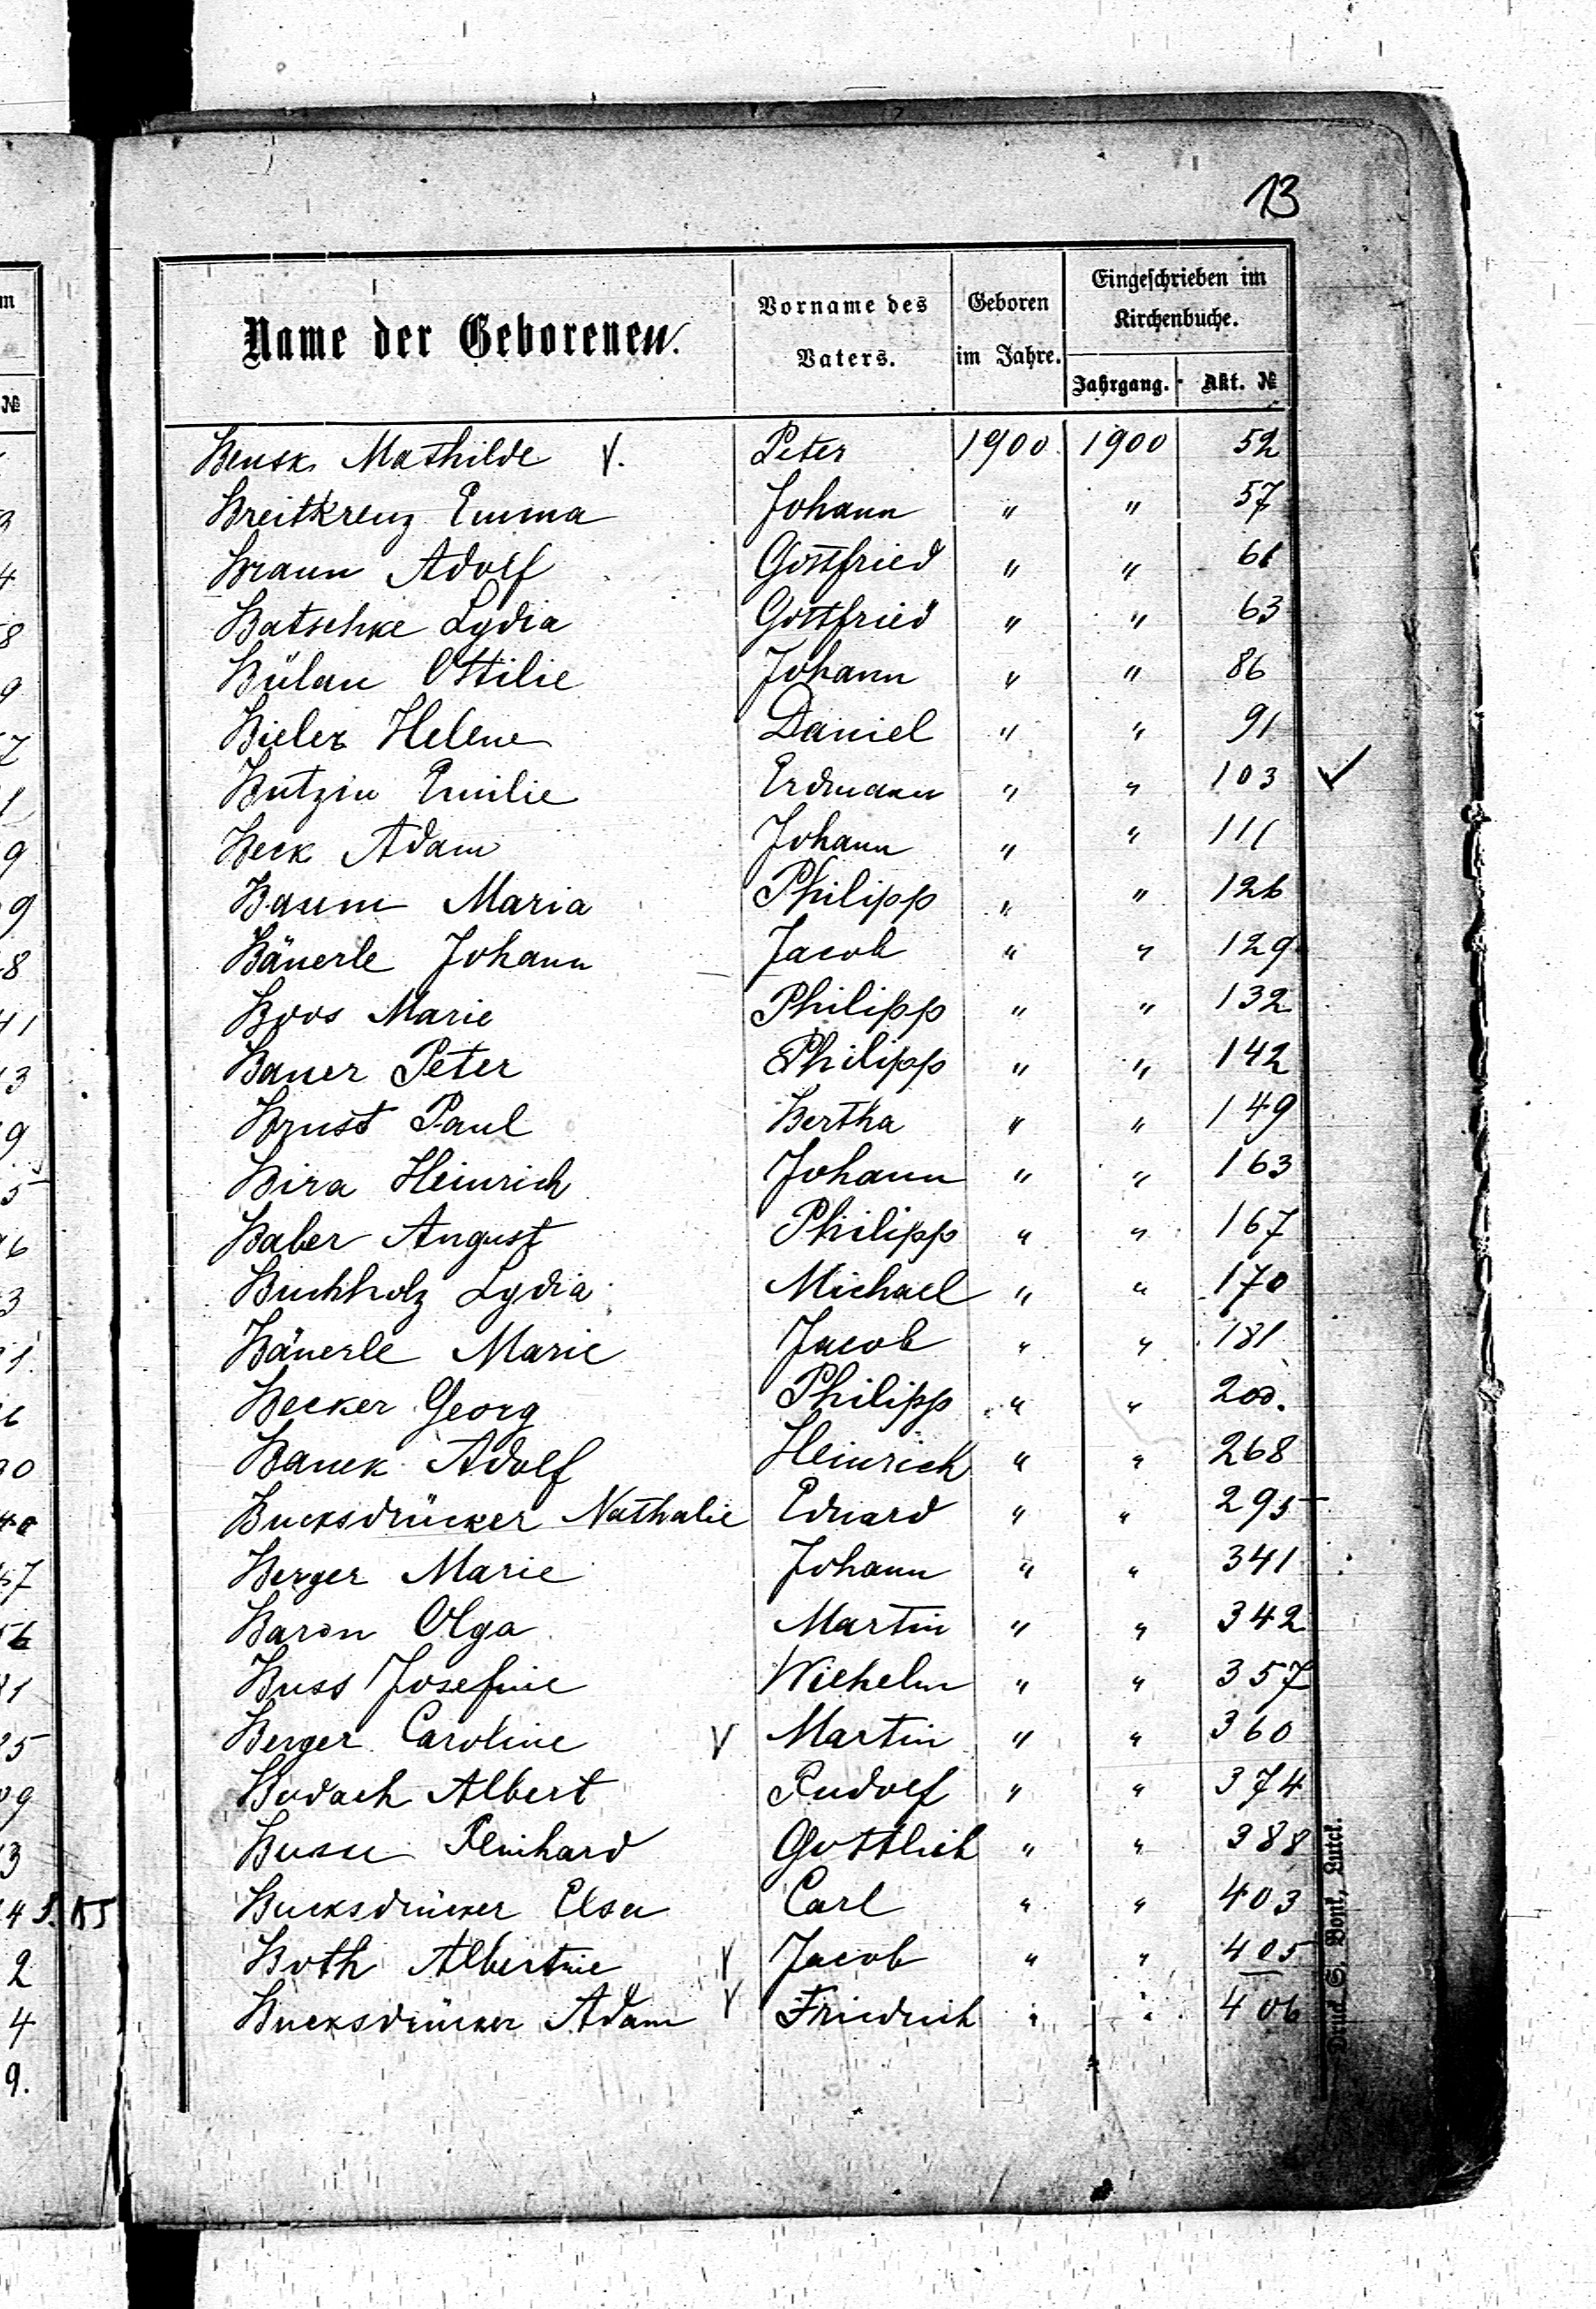 13
Name der Geborenen. Vorname des Vaters. Geboren im Jahre. Eingeschrieben im Kirchenbuche.
Jahrgang. Akt. №
Bensk Mathilde V. Peter 1900 1900 52
Breitkreuz Emma Johann " " 57
Braun Adolf Gottfried " " 61
Batschke Lydia Gottfried " " 63
Bülau Ottilie Johann " " 86
Bieler Helene Daniel " " 91
Butzin Emilie Erdmann " " 103 ✓
Beck Adam Johann " " 111
Baum Maria Philipp " " 126
Bäuerle Johann Jacob " " 129
Boos Marie Philipp " " 132
Bauer Peter Philipp " " 142
Brust Paul Bertha " " 149
Bira Heinrich Johann " " 163
Baber August Philipp " " 167
Buchholz Lydia Michael " " 170
Bäuerle Marie Jacob " " 181
Becker Georg Philipp " " 200.
Banek Adolf Heinrich " " 268
Bucksdrücker Nathalie Eduard " " 295
Berger Marie Johann " " 341
Baron Olga Martin " " 342
Buss Josefine Wilhelm " " 357
Berger Caroline V Martin " " 360
Bodach Albert Rudolf " " 374
Busse Reinhard Gottlieb " " 388
Bucksdrücker Elsa Carl " " 403
Both Albertine V Jacob " " 405
Bucksdrücker Adam V Friedrich " " 406
Druck S. Bonk, Luzk.